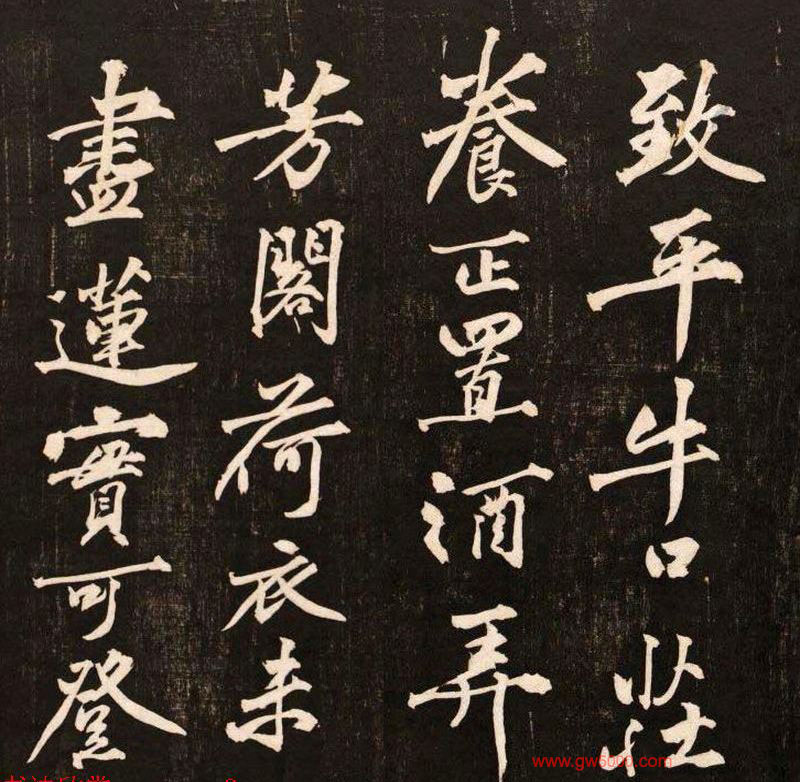 致平牛口莊
養正置酒弄
芳閣荷衣未
盡蓮實可登
www.gw5000.com